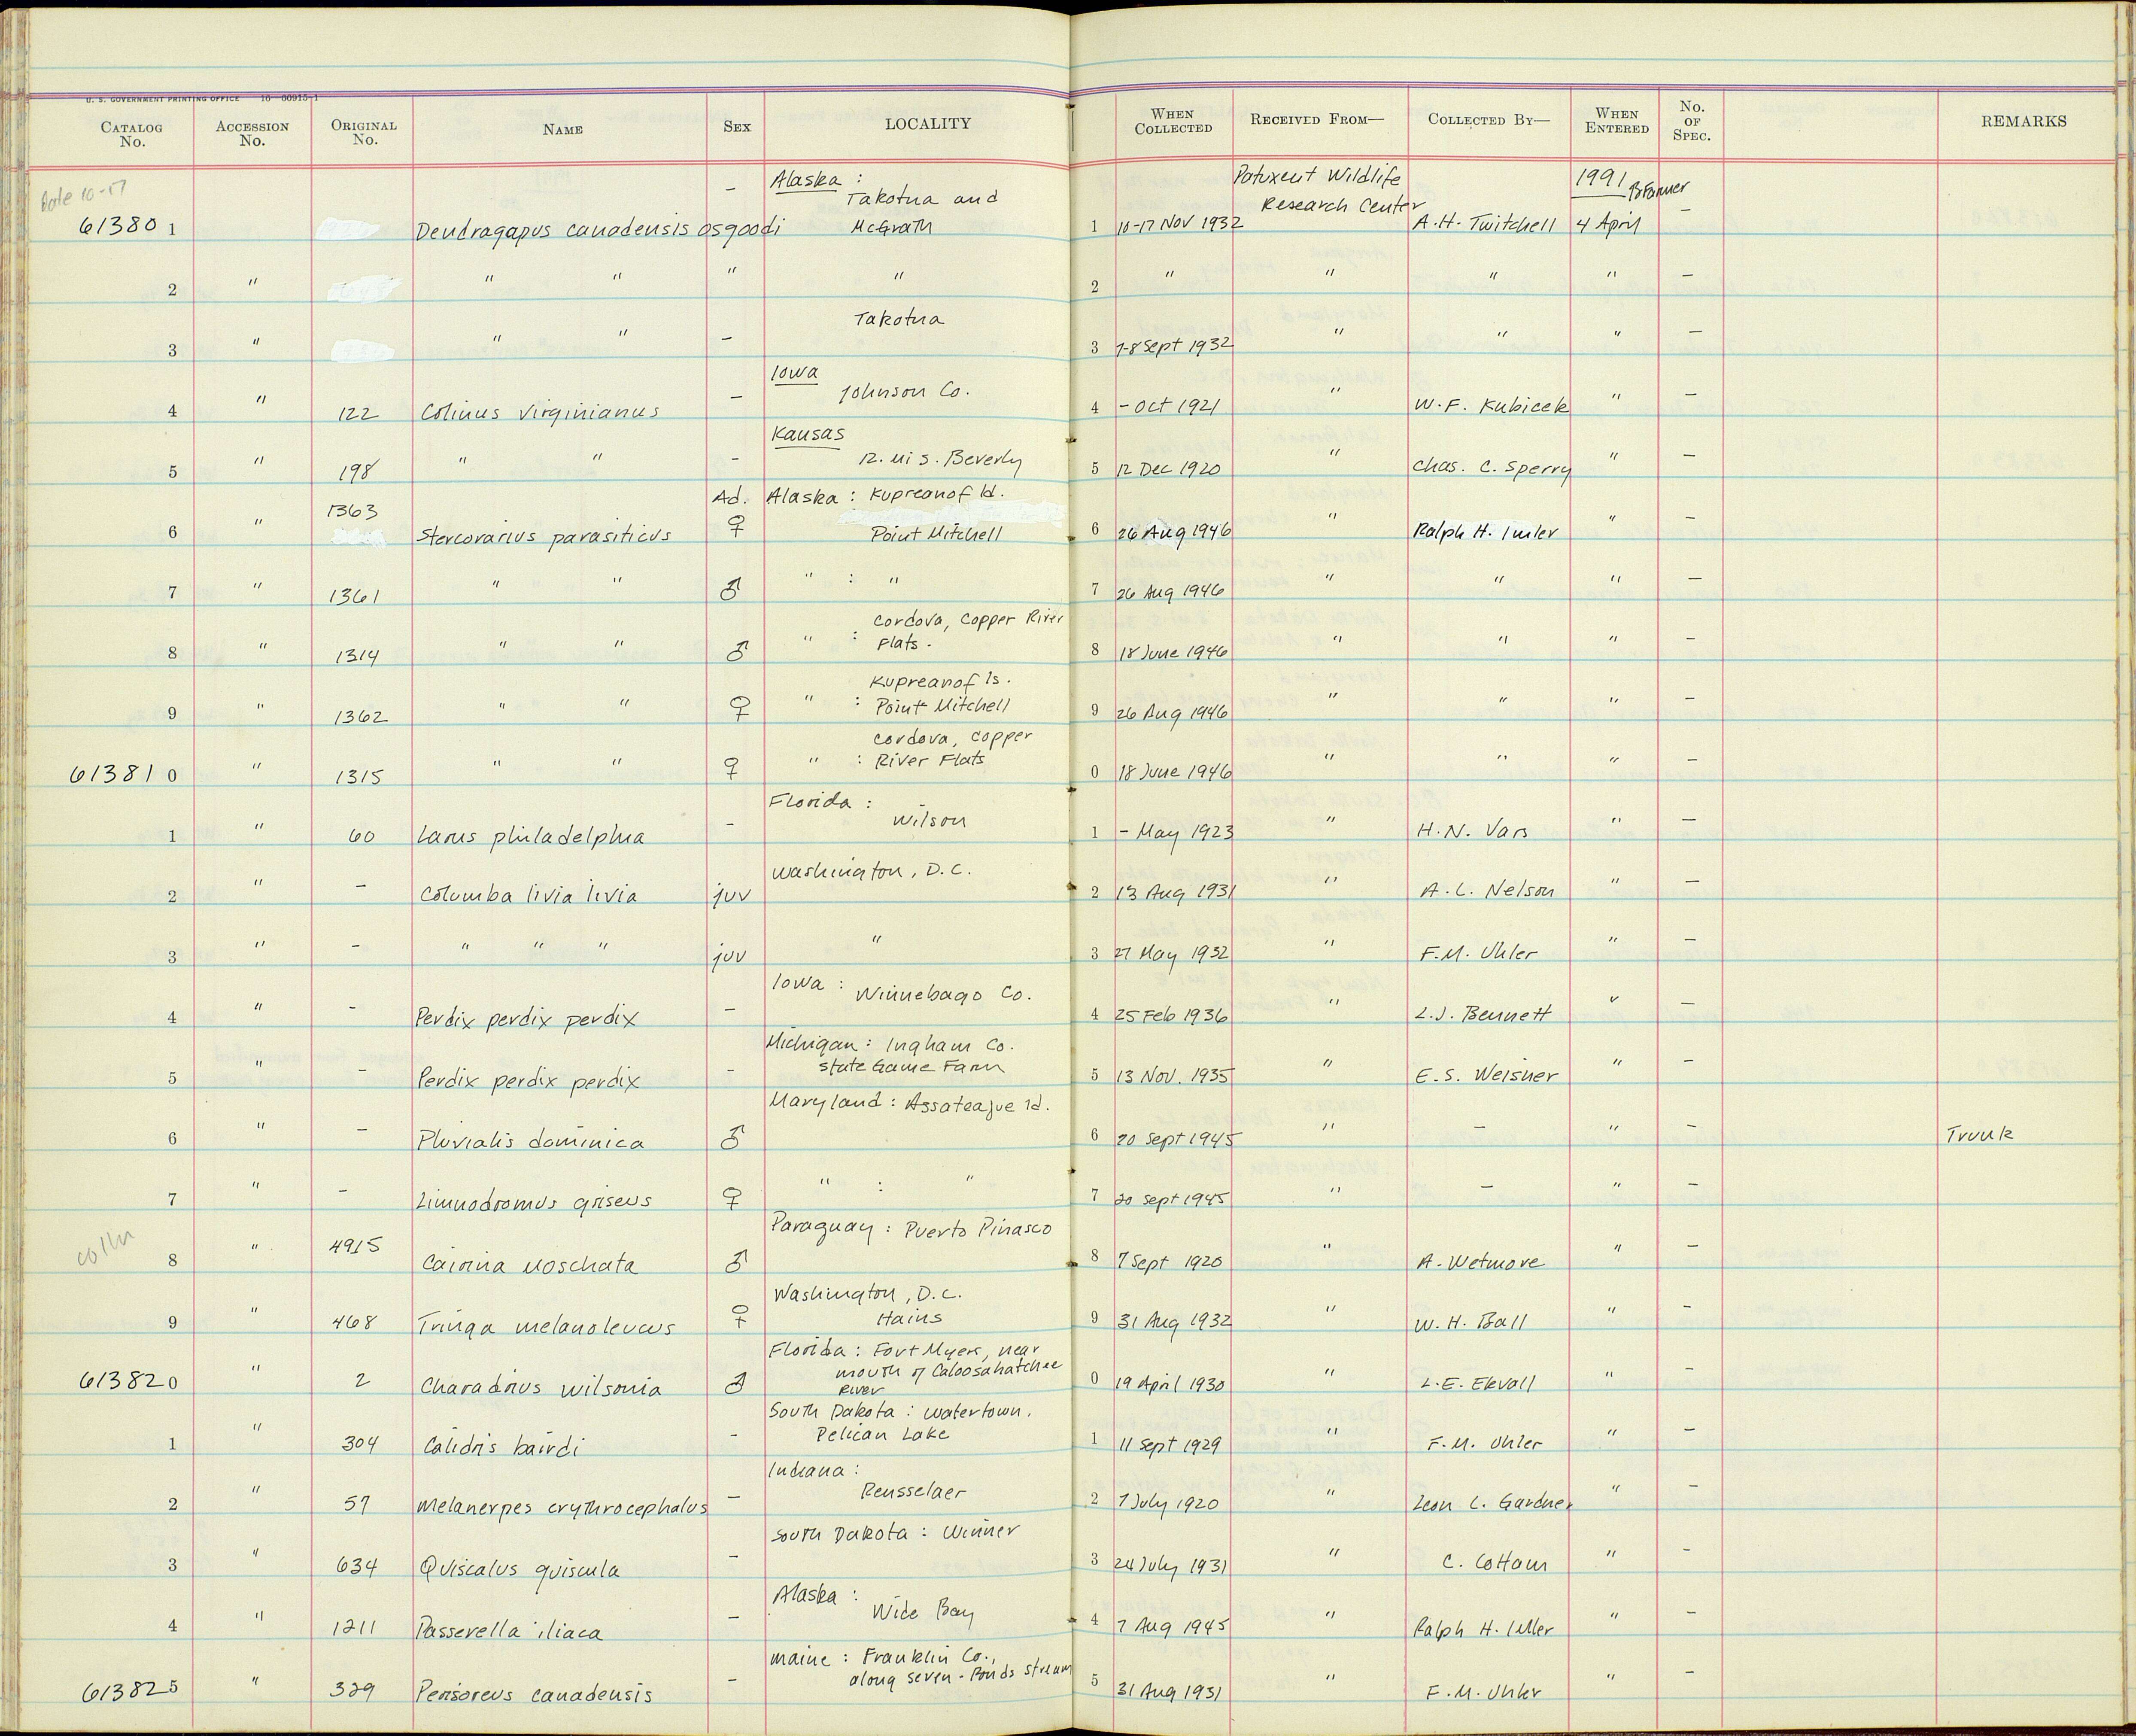 U. S. GOVERNMENT PRINTING OFFICE 16—00915-1
CATALOG No. ACCESSION No. ORIGINAL No. NAME SEX LOCALITY WHEN COLLECTED RECEIVED FROM— COLLECTED BY— WHEN ENTERED No. OF SPEC. REMARKS
Date 10-17
61380 1 Dendragapus canadensis osgoodi – Alaska : Takotna and McGrath 1 10-17 Nov 1932 Patuxent Wildlife Research Center A.H. Twitchell 1991 4 April –
2 " " " " " 2 " " " " –
3 " " " – Takotna 3 7-8 Sept 1932 " " " –
4 " 122 Colinus virginianus – Iowa Johnson Co. 4 – Oct 1921 " W.F. Kubicek " –
5 " 198 " " – Kansas 12. mi S. Beverly 5 12 Dec 1920 " Chas. C. Sperry " –
6 " 1363 Stercorarius parasiticus Ad. ♀ Alaska : Kupreanof Id. Point Mitchell 6 26 Aug 1946 " Ralph H. Imler " –
7 " 1361 " " " ♂ " : " 7 26 Aug 1946 " " " –
8 " 1314 " " " ♂ " : Cordova, Copper River Flats. 8 18 June 1946 " " " –
9 " 1362 " " " ♀ " : Kupreanof Is. Point Mitchell 9 26 Aug 1946 " " " –
61381 0 " 1315 " " " ♀ " : Cordova, Copper River Flats 0 18 June 1946 " " " –
1 " 60 Larus philadelphia – Florida : Wilson 1 – May 1923 " H.N. Vars " –
2 " – Columba livia livia juv Washington, D.C. 2 13 Aug 1931 " A.L. Nelson " –
3 " – " " " juv " 3 27 May 1932 " F.M. Uhler " –
4 " – Perdix perdix perdix – Iowa : Winnebago Co. 4 25 Feb 1936 " L.J. Bennett " –
5 " – Perdix perdix perdix – Michigan : Ingham Co. State Game Farm 5 13 Nov. 1935 " E.S. Weisner " –
6 " – Pluvialis dominica ♂ Maryland : Assateague Id. 6 20 Sept 1945 " – " – Trunk
7 " – Limnodromus griseus ♀ " : " 7 20 Sept 1945 " – " –
8 " 4915 Cairina moschata ♂ Paraguay : Puerto Pinasco 8 7 Sept 1920 " A. Wetmore " –
9 " 468 Tringa melanoleucus ♀ Washington, D.C. Hains 9 31 Aug 1932 " W.H. Ball " –
61382 0 " 2 Charadrius wilsonia ♂ Florida : Fort Myers, near mouth of Caloosahatchee River 0 19 April 1930 " L.E. Ekvall " –
1 " 304 Calidris bairdi – South Dakota : Watertown. Pelican Lake 1 11 Sept 1929 " F.M. Uhler " –
2 " 57 Melanerpes erythrocephalus – Indiana : Rensselaer 2 7 July 1920 " Leon L. Gardner " –
3 " 634 Quiscalus quiscula – South Dakota : Winner 3 24 July 1931 " C. Cottam " –
4 " 1211 Passerella iliaca – Alaska : Wide Bay 4 7 Aug 1945 " Ralph H. Imler " –
61382 5 " 329 Perisoreus canadensis – Maine : Franklin Co., along Seven-Ponds stream 5 31 Aug 1931 " F.M. Uhler " –